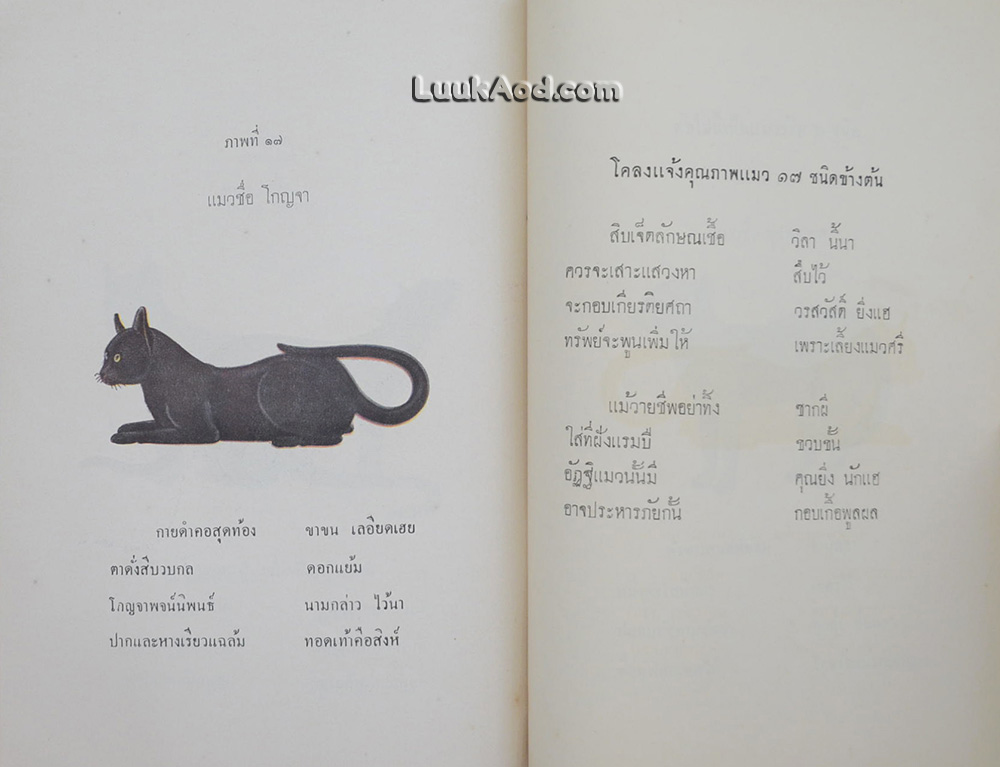 LuukAod.com
ภาพที่ ๑๗
แมวชื่อ โกญจา
กายดำคอสุดท้อง ขาขน เลอียดเฮย
ตาดั่งสีบวบกล ดอกแย้ม
โกญจาพจน์นิพนธ์ นามกล่าว ไว้นา
ปากและหางเรียวแฉล้ม ทอดเท้าคือสิงห์
โคลงแจ้งคุณภาพแมว ๑๗ ชนิดข้างต้น
สิบเจ็ดลักษณเชื้อ วิลา นี้นา
ควรจะเสาะแสวงหา สืบไว้
จะกอบเกียรติยศถา วรสวัสดิ์ ยิ่งแฮ
ทรัพย์จะพูนเพิ่มให้ เพราะเลี้ยงแมวศรี
แม้วายชีพอย่าทิ้ง ซากผี
ใส่ที่ฝังแรมปี ขวบชั้น
อัฏฐิแมวนั้นมี คุณยิ่ง นักแฮ
อาจประหารภัยกั้น กอบเกื้อพูลผล